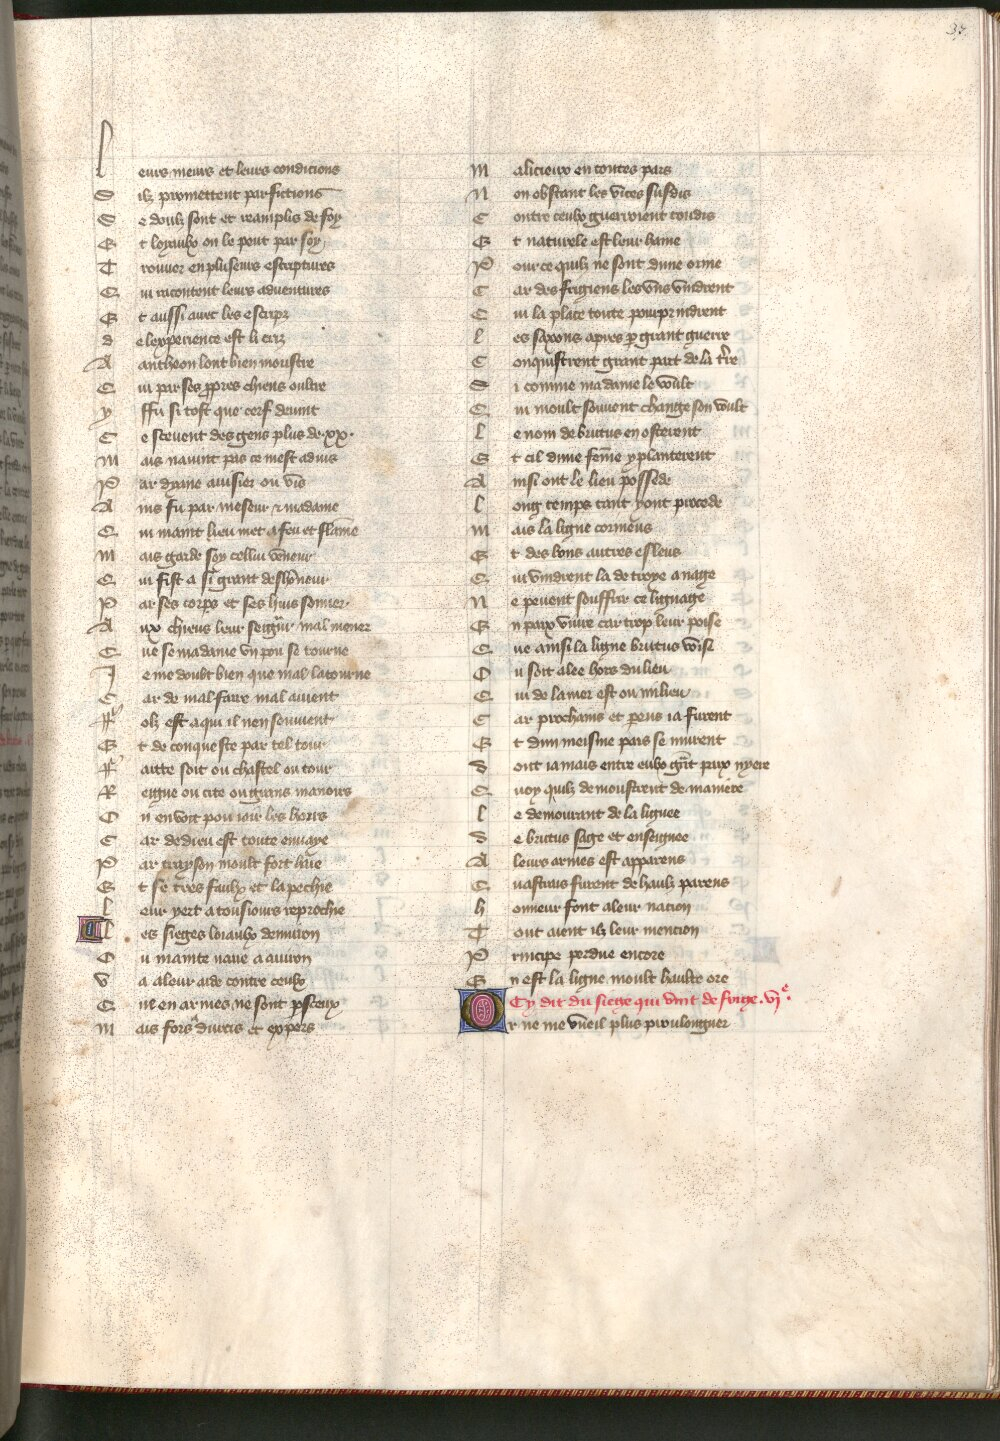 37
Leurs meurs et leurs condicions
Silz promettent par fictions
Se doulz sont et raemplis de foy
Et loyaulx on le peut par foy
Trouver en pluseurs escriptures
Qui racontent leurs adventures
Et aussi avec les escrips
de lexperience est li criz
Aantheon lont bien moustre
Qui par ses ppres chiens oultre
yssu si tost que cerf devint
Ce scevent des gens plus de .xx.
mais navint pas ce mest advis
Par dyane avisier ou vis
Ains fu par meseur & madame
Qui maint lieu met a feu et flame
mais garde soy cellui veneur
Qui fist a si grant deshoneur
Par ses corps et ses huis sonner
Aux chiens leur seigneur mal mener
Que se madame vn pou se tourne
Je me doubt bien que mal latourne
Car de mal faire mal avient
ffolz est a qui il nen souvient
Et de conqueste par tel tour
ffaitte soit ou chastel ou tour
Regne ou cite ou grans manoirs
On en voit pou ioir les hoirs
Car de dieu est toute envaye
Par trayson moult fort haie
Et se tres faulx et la pechie
leur yert a tousiours reprochie
les sieges loiaulx denviron
Ou mainte naue a auiron
Va a leur aide contre ceulx
Qui en armes ne sont pceux
mais fors divers et expers
malicieux en toutes pars
Non obstant les vices susdis
Contre ceulx guerroient toudis
Et naturele est leur haine
Pour ce quilz ne sont dune orine
Car des frigiens les vns vindrent
Qui la place toute pourprindrent
les saxons apres p grant guerre
Conquistrent grant part de la trre
Si comme madame le voult
Qui moult souvent change son voult
le nom de brutus en osterent
Et cil dune feme y planterent
Ainsi ont le lieu possede
long temps tant y ont procede
mais la ligne cormeus
Et des bons autres esleus
Qui vindrent la de troye a nage
Ne pevent souffrir ce lignage
En paix vivre car trop leur poise
Que ainsi la ligne brutus voise
Ou soit alee hors du lieu
Qui de la mer est ou milieu
Car prochains et pens ia furent
Et dun meisme pais se murent
dont iamais entre eulx gnt paix nyere
Quoy quilz demoustrent de maniere
le demourant de la lignee
de brutus sage et enseignee
A leurs armes est apparens
Quastrais furent de haulz parens
honneur font a leur nacion
Tout aient ilz leur mencion
Principe perdue encore
En est la ligne moult haulte ore
Cy dit du siege qui vint de frige .vi.e
Or ne me vueil plus proulonguer